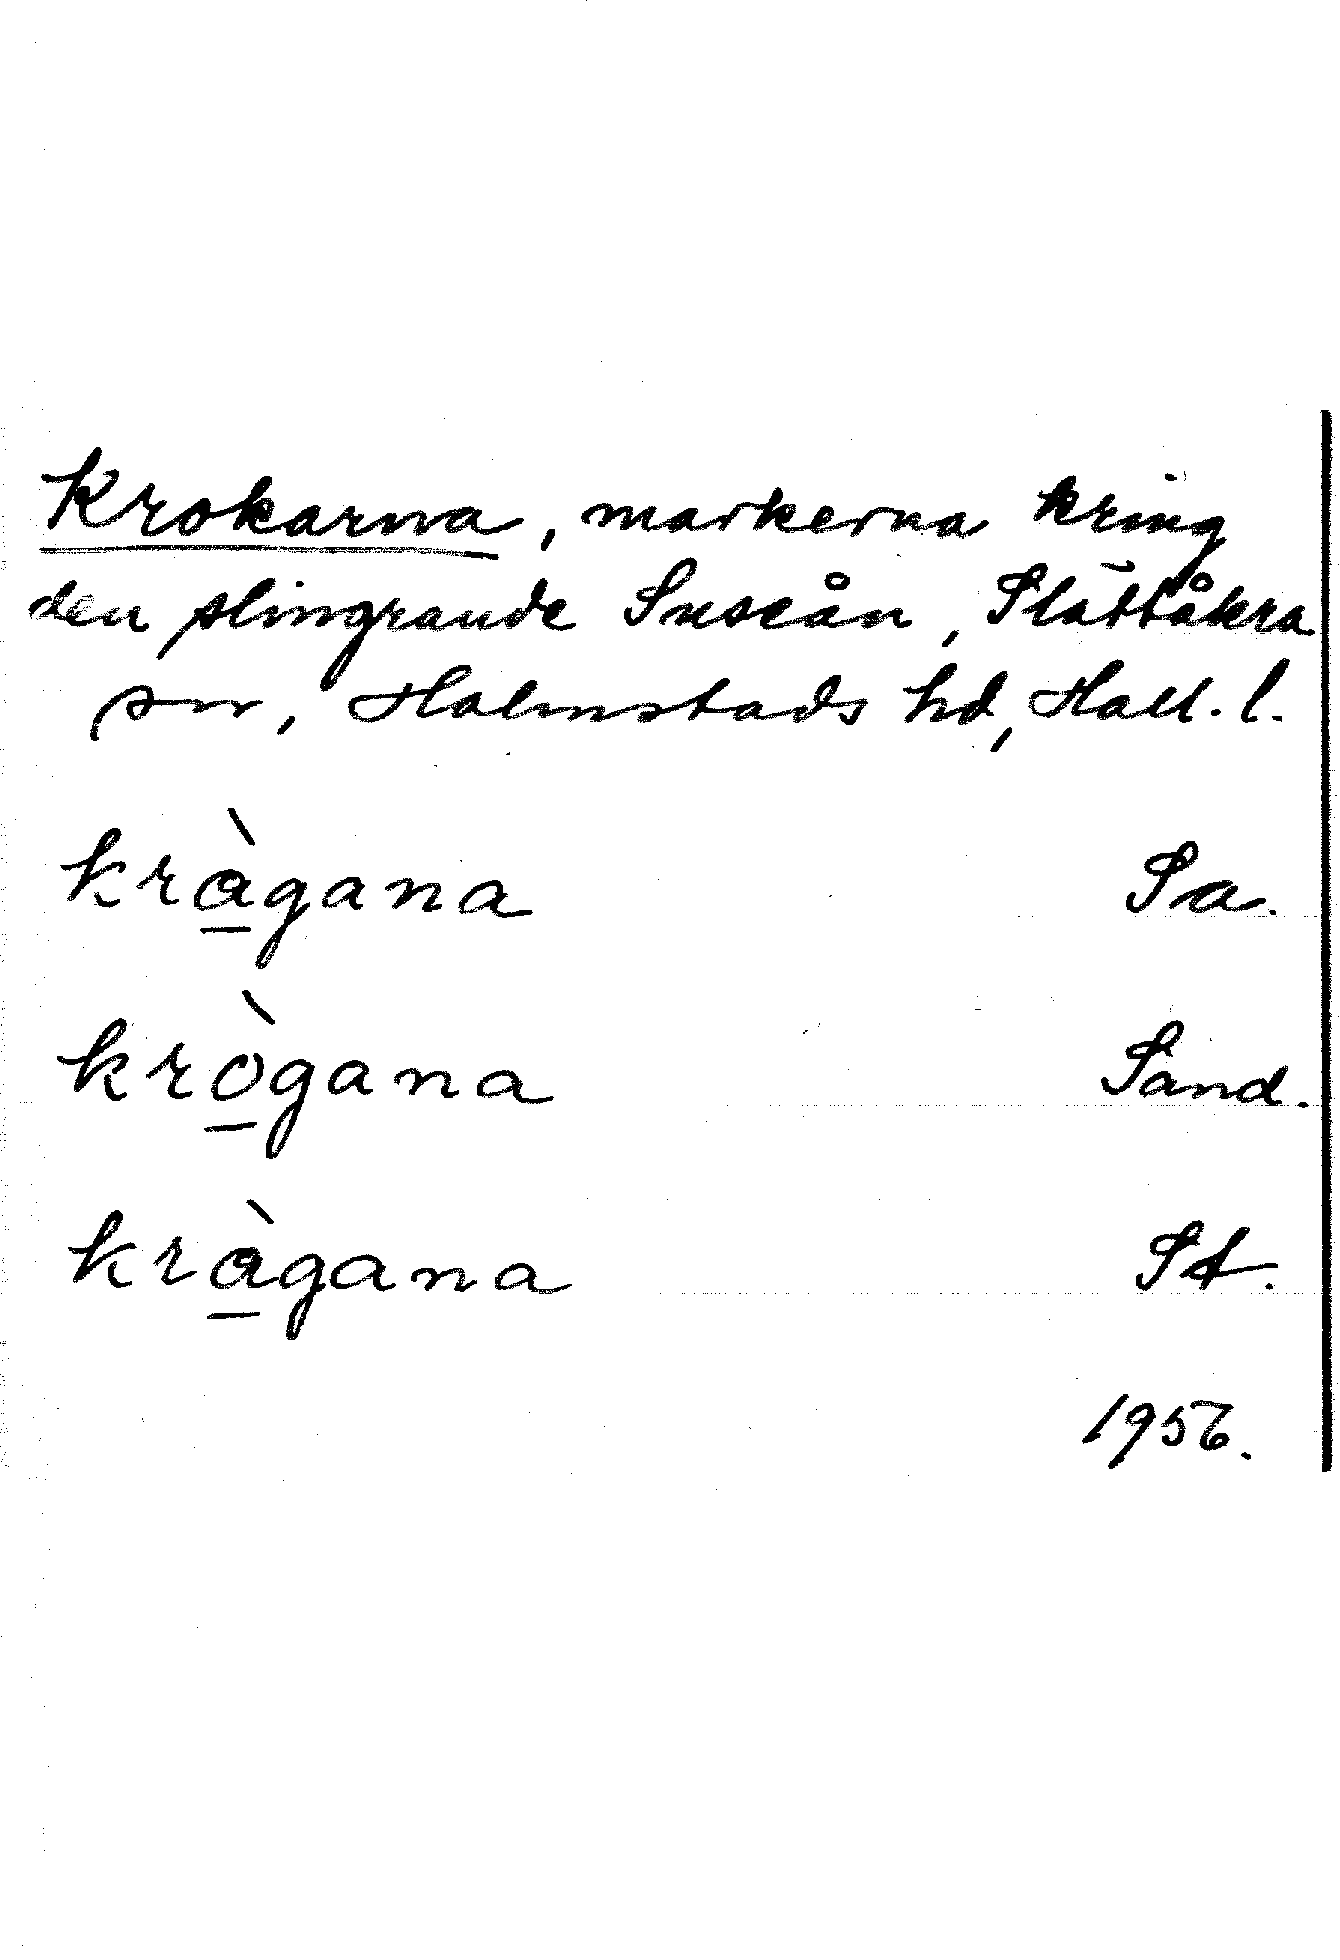 Krokarna, markerna kring
den slingrande Suseån, Slättåkra
sn, Halmstads hd, Hall. l.
krà̱gana Sa.
krò̱gana Sand.
krà̱gana St.
1956.